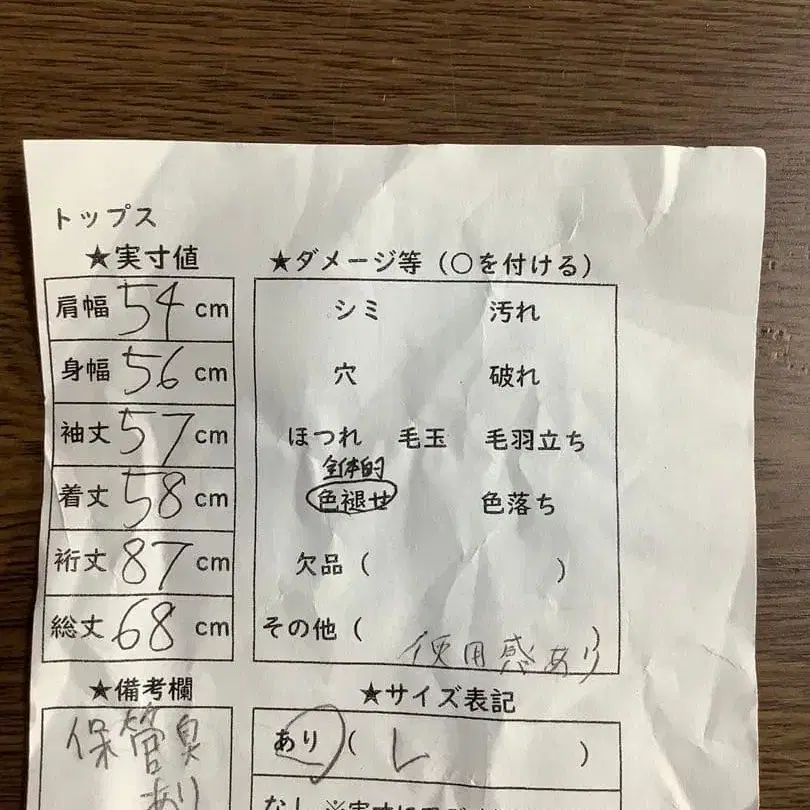 トップス
★実寸値
肩幅 54 cm
身幅 56 cm
袖丈 57 cm
着丈 58 cm
裄丈 87 cm
総丈 68 cm
★ダメージ等(○を付ける)
シミ 汚れ
穴 破れ
ほつれ 毛玉 毛羽立ち
全体的
色褪せ 色落ち
欠品( )
その他(
使用感あり
★備考欄
保管臭
あり
★サイズ表記
あり( L )
なし ※実寸に